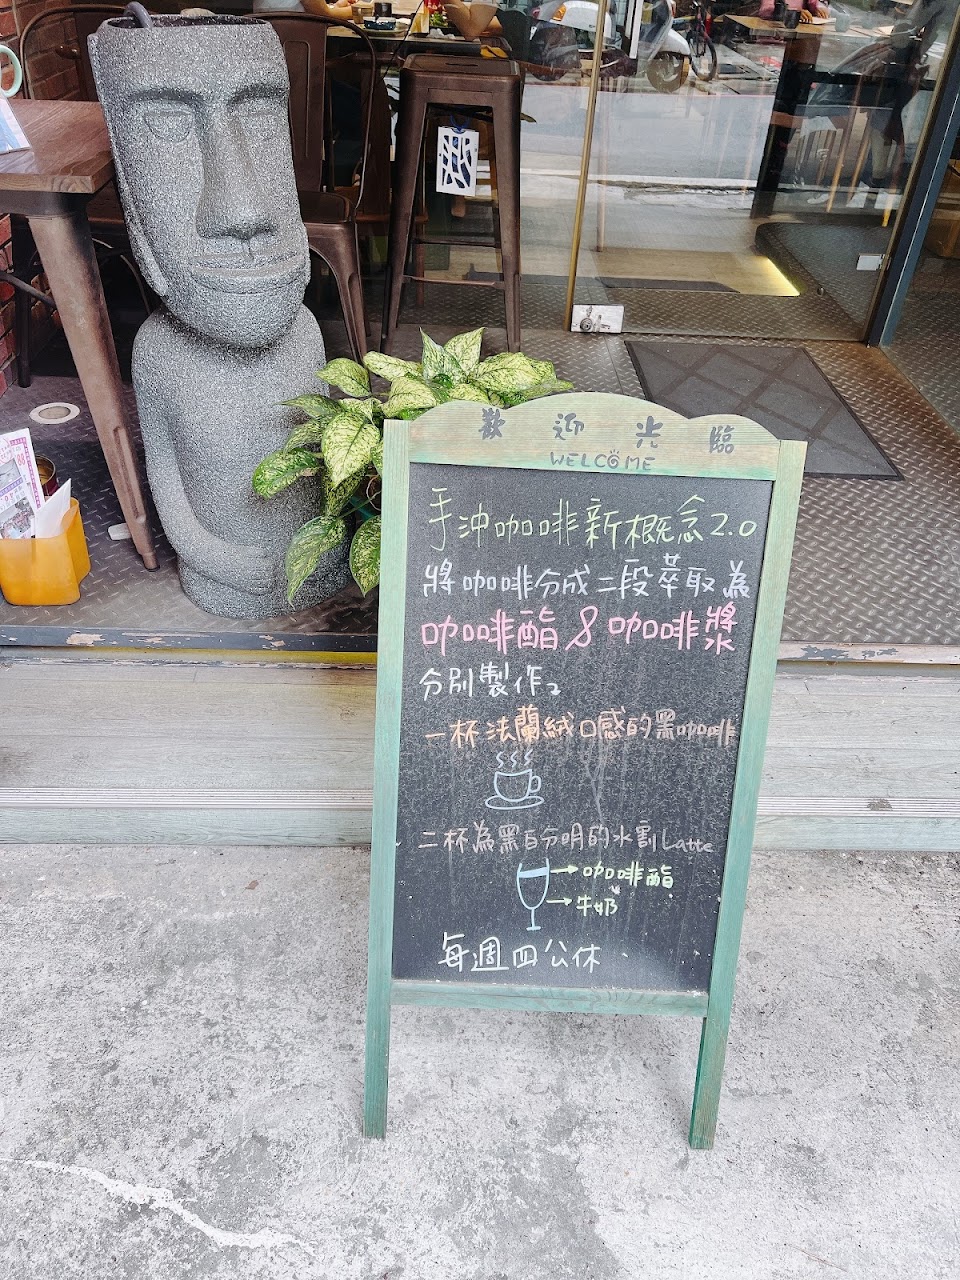 歡迎光臨
WELCOME
手沖咖啡新概念2.0
將咖啡分成二段萃取為
咖啡酯&咖啡漿
分別製作。
一杯法蘭絨口感的黑咖啡
二杯為黑白分明的水割Latte
→咖啡酯
→牛奶
每週四公休.